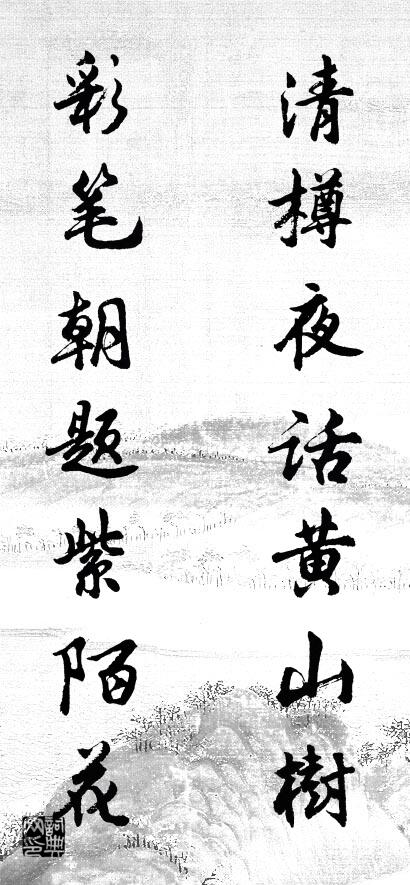 清樽夜话黄山樹
彩笔朝题紫陌花